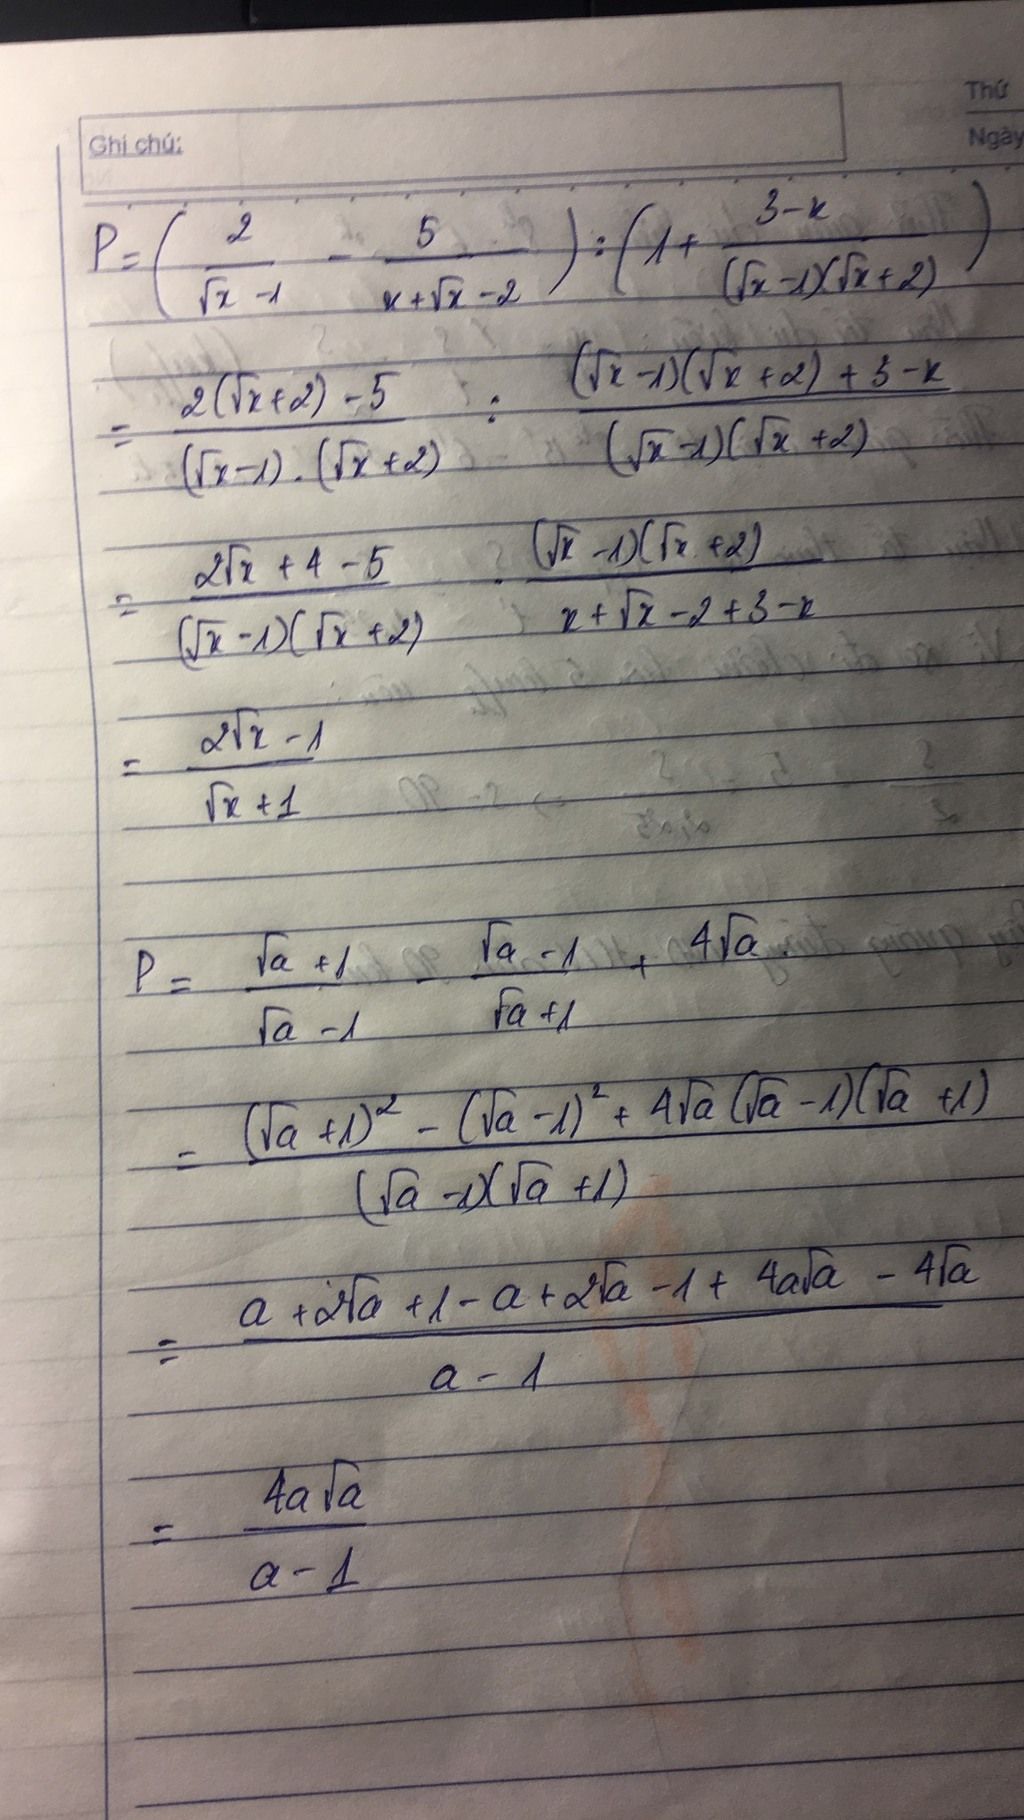 Thứ
Ghi chú:
Ngày
P = ( 2/(√x - 1) - 5/(x + √x - 2) ) : ( 1 + (3 - x)/((√x - 1)(√x + 2)) )
= (2(√x + 2) - 5)/((√x - 1) . (√x + 2)) : ((√x - 1)(√x + 2) + 3 - x)/((√x - 1)(√x + 2))
= (2√x + 4 - 5)/((√x - 1)(√x + 2)) . ((√x - 1)(√x + 2))/(x + √x - 2 + 3 - x)
= (2√x - 1)/(√x + 1)
P = (√a + 1)/(√a - 1) - (√a - 1)/(√a + 1) + 4√a .
= ((√a + 1)² - (√a - 1)² + 4√a (√a - 1)(√a + 1))/((√a - 1)(√a + 1))
= (a + 2√a + 1 - a + 2√a - 1 + 4a√a - 4√a)/(a - 1)
= (4a√a)/(a - 1)